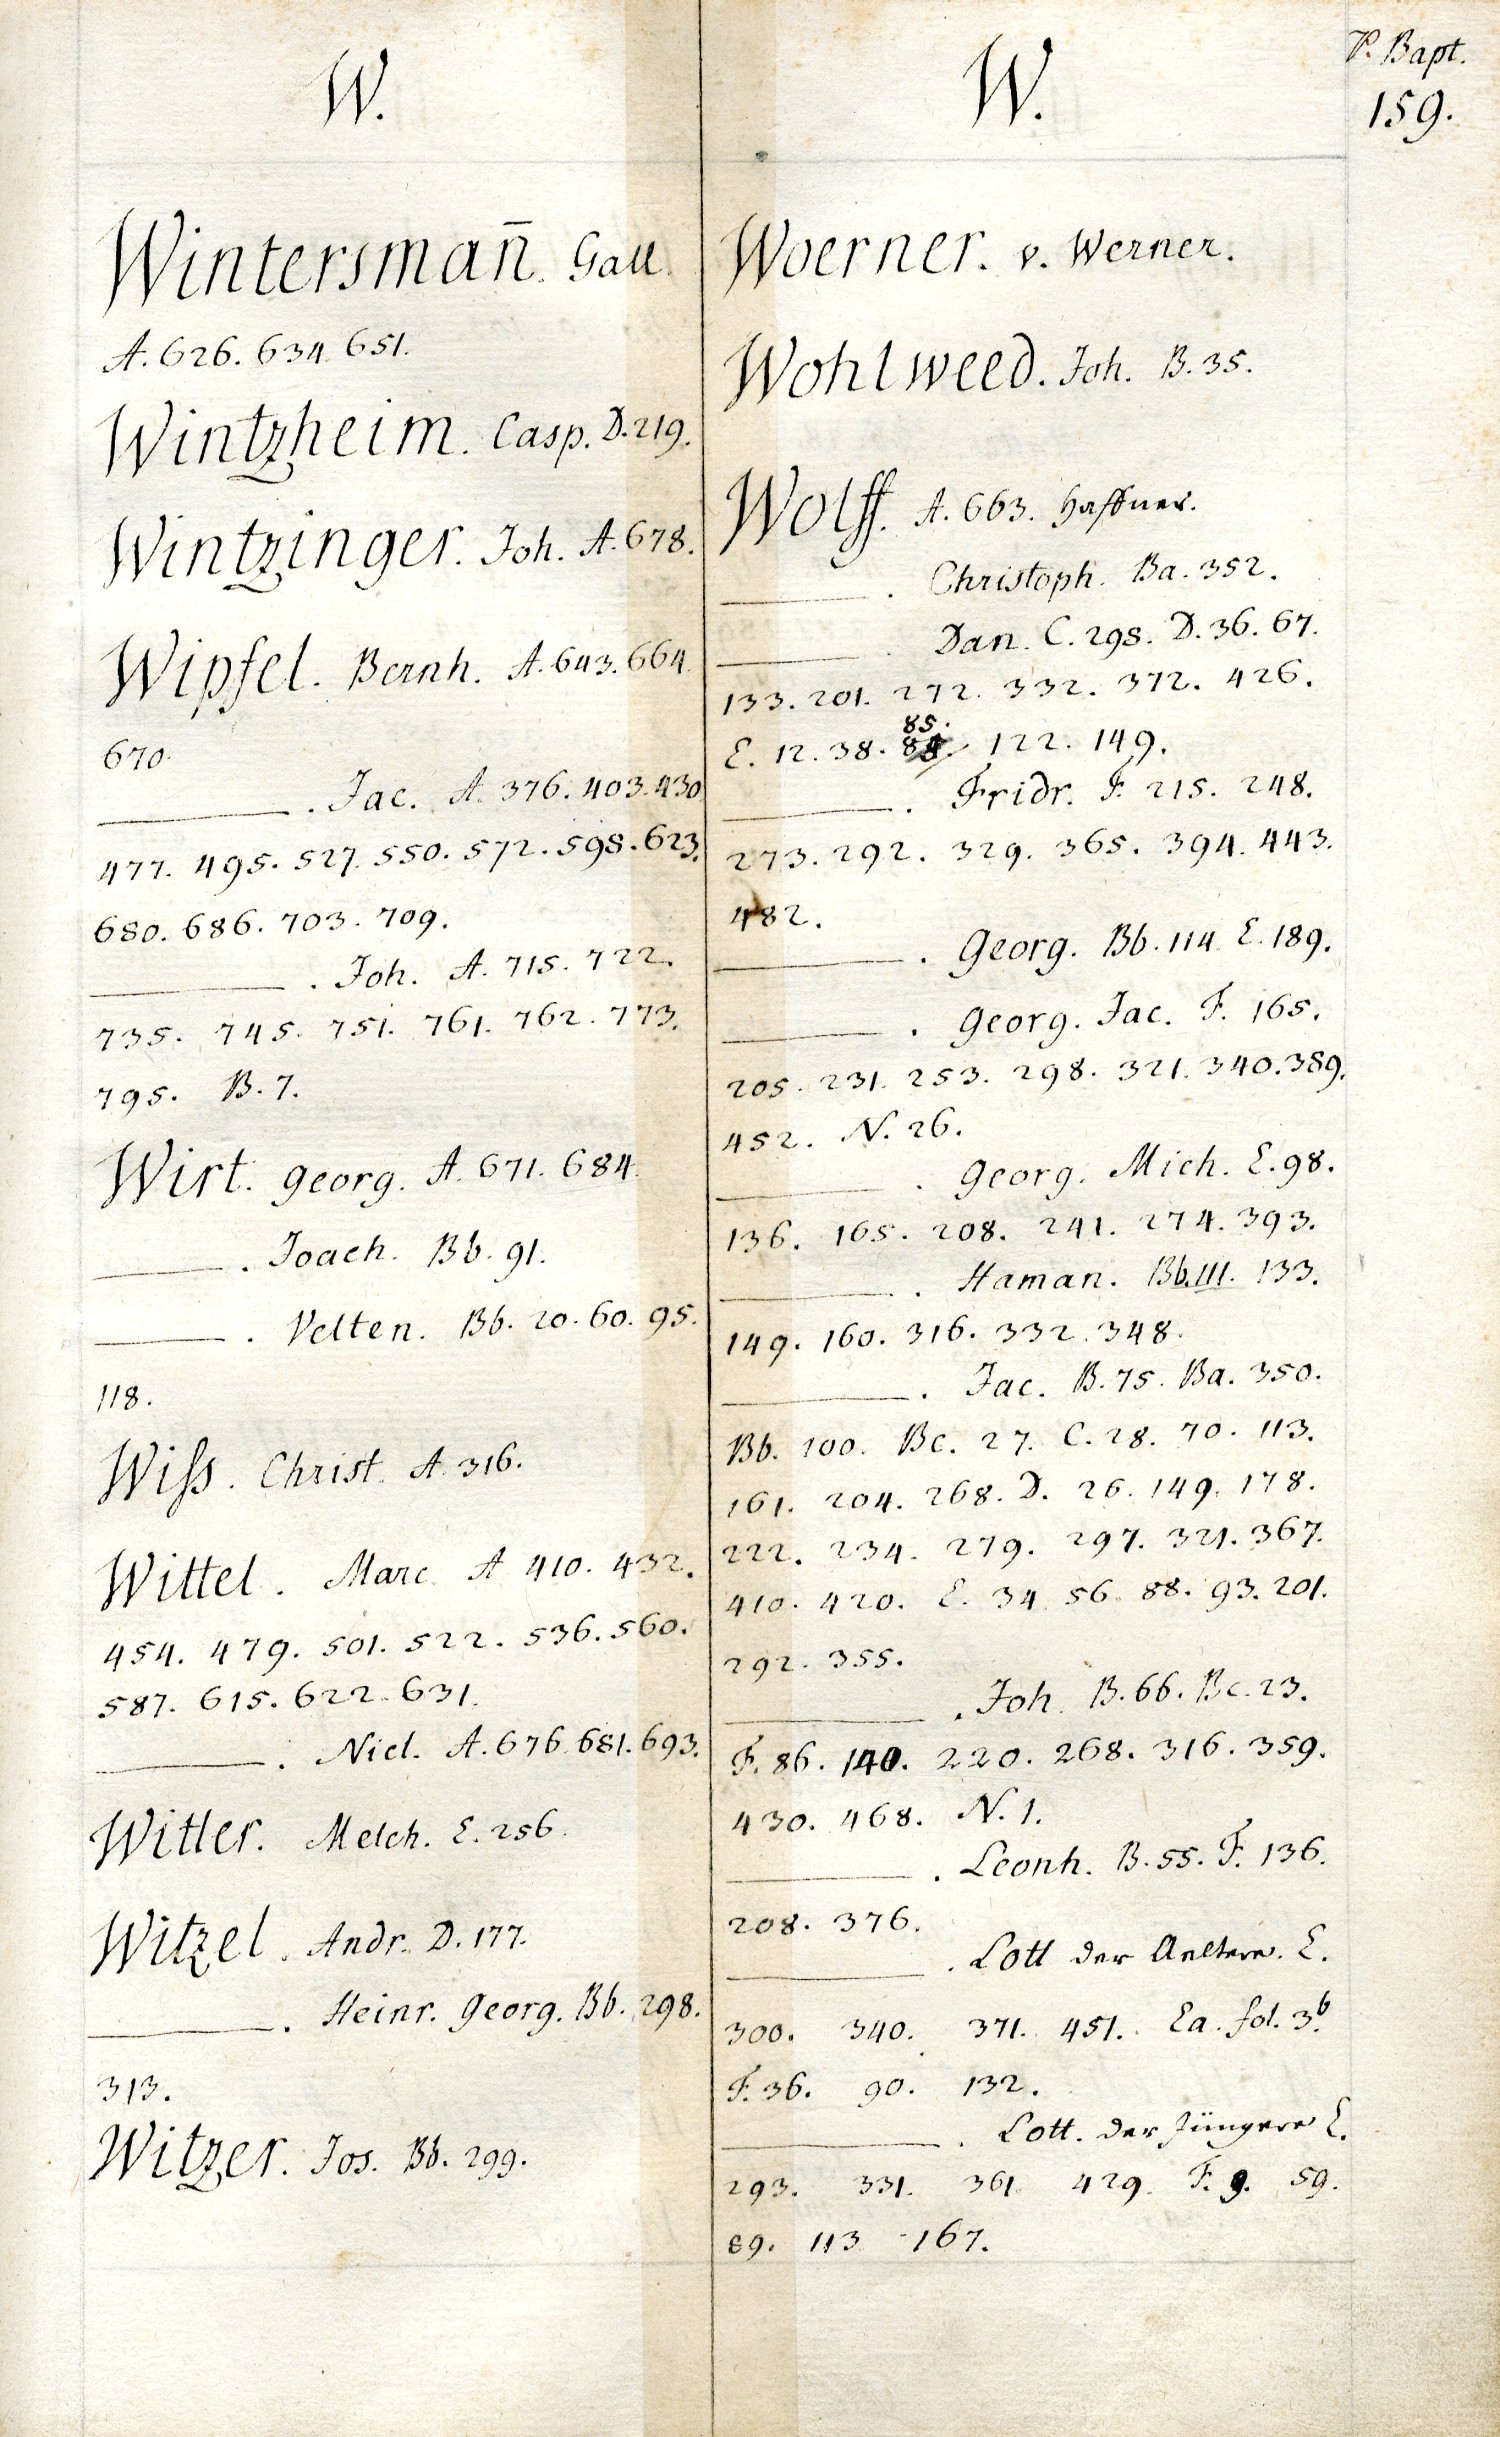 W.
Wintersman̄. Gall.
A. 626. 634. 651.
Wintzheim. Casp. D. 219.
Wintzinger. Joh. A. 678.
Wipfel. Bernh. A. 643. 664.
670.
———. Jac. A. 376. 403. 430.
477. 495. 527. 550. 572. 598. 623.
680. 686. 703. 709.
———. Joh. A. 715. 722.
735. 745. 751. 761. 762. 773.
795. B. 7.
Wirt. Georg. A. 671. 684.
———. Joach. Bb. 91.
———. Velten. Bb. 20. 60. 95.
118.
Wiſs. Christ. A. 316.
Wittel. Marc. A 410. 432.
454. 479. 501. 522. 536. 560.
587. 615. 622. 631.
———. Nicl. A. 676. 681. 693.
Witter. Melch. E. 256.
Witzel. Andr. D. 177.
———. Heinr. Georg. Bb. 298.
313.
Witzer. Jos. Bb. 299.
W.
P. Bapt.
159.
Woerner. v. Werner.
Wohlweed. Joh. B. 35.
Wolff. A. 663. Haffner.
———. Christoph. Ba. 352.
———. Dan. C. 298. D. 36. 67.
133. 201. 272. 332. 372. 426.
85.
E. 12. 38. 84. 122. 149.
———. Fridr. F. 215. 248.
273. 292. 329. 365. 394. 443.
482.
———. Georg. Bb. 114. E. 189.
———. Georg. Jac. F. 165.
205. 231. 253. 298. 321. 340. 389.
452. N. 26.
———. Georg. Mich. E. 98.
136. 165. 208. 241. 274. 393.
———. Haman. Bb. 111. 133.
149. 160. 316. 332. 348.
———. Jac. B. 75. Ba. 350.
Bb. 100. Bc. 27. C. 28. 70. 113.
161. 204. 268. D. 26. 149. 178.
222. 234. 279. 297. 321. 367.
410. 420. E. 34. 56. 88. 93. 201.
292. 355.
———. Joh. B. 66. Bc. 23.
F. 86. 140. 220. 268. 316. 359.
430. 468. N. 1.
———. Leonh. B. 55. F. 136.
208. 376.
———. Lott der Aeltere. E.
300. 340. 371. 451. Ea. fol. 3b.
F. 36. 90. 132.
———. Lott. der Jüngere E.
293. 331. 361. 429. F. 9. 59.
89. 113 167.